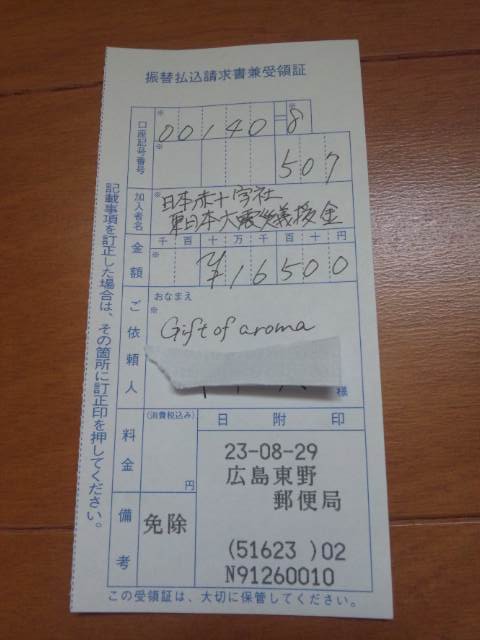 振替払込請求書兼受領証
口座記号番号
※ 00140=※8
507
加入者名
※日本赤十字社
東日本大震災義援金
金額
千百十万千百十円
※ ¥16500
ご依頼人
おなまえ
※
Gift of aroma
様
料金
(消費税込み)
円
備考
免除
日附印
23-08-29
広島東野
郵便局
(51623 )02
N91260010
記載事項を訂正した場合は、その箇所に訂正印を押してください。
この受領証は、大切に保管してください。